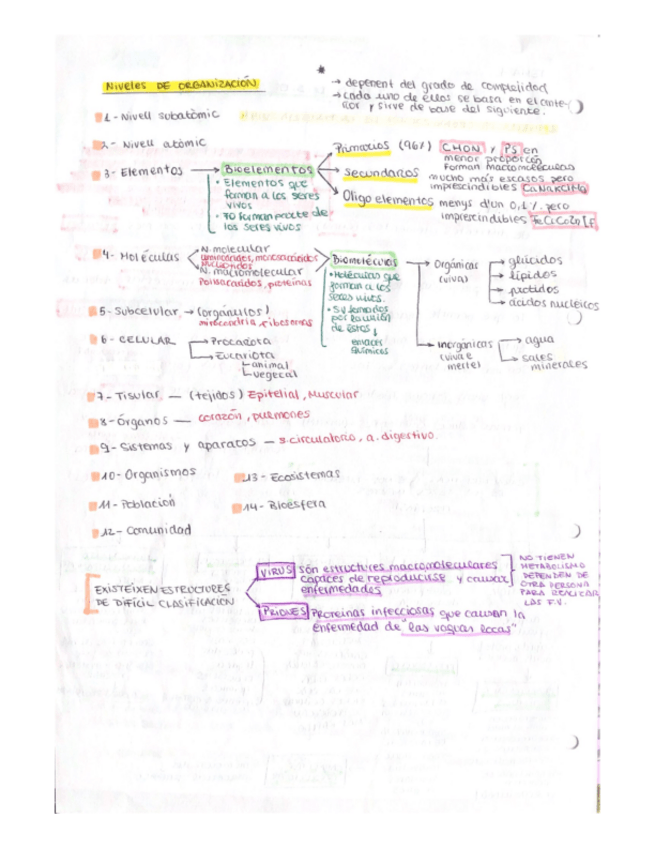 *
Niveles DE ORGANIZACIÓN
→ depenent del grado de complejidad
→ cada uno de ellos se basa en el ante-
rior y sirve de base del siguiente.
1- Nivell subatòmic
2- Nivell atòmic
3- Elementos → Bioelementos
• Elementos que
forman a los seres
vivos
• 70 forman parte de
los seres vivos
Primarios (96%) CHON y PS en
menor proporción
Forman macromoléculas
secundarios mucho más escasos pero
imprescindibles CaNaKClMg
Oligo elementos menys d'un 0,1% pero
imprescindibles
4- Moléculas
N. molecular
aminoácidos, monosacáridos
nucleótidos
N. macromolecular
Polisacáridos, proteínas
Biomoléculas
• Moléculas que
forman a los
seres vivos.
• Su formados
por la unión
de éstos,
enlaces
químicos
Orgánicas
(viva)
glúcidos
lípidos
protidos
ácidos nucleicos
inorgánicas
(viva e
inerte)
agua
sales
minerales
5- Subcelular → (orgánulos)
mitocondria, ribosomas
6- CELULAR
Procariota
Eucariota
animal
vegetal
7- Tisular — (tejidos) Epitelial, Muscular
8- Órganos — corazón, pulmones
9- Sistemas y aparatos — s. circulatorio, a. digestivo.
10- Organismos
11- Población
12- Comunidad
13- Ecosistemas
14- Bioesfera
EXISTEIXEN ESTRUCTURES
DE DIFÍCIL CLASIFICACIÓN
VIRUS son estructures macromoleculares
capaces de reproducirse y causar
enfermedades
NO TIENEN
METABOLISMO
DEPENDEN DE
OTRA PERSONA
PARA REALIZAR
LAS F.V.
PRIONES Proteinas infecciosas que causan la
enfermedad de "las vaguas locas"